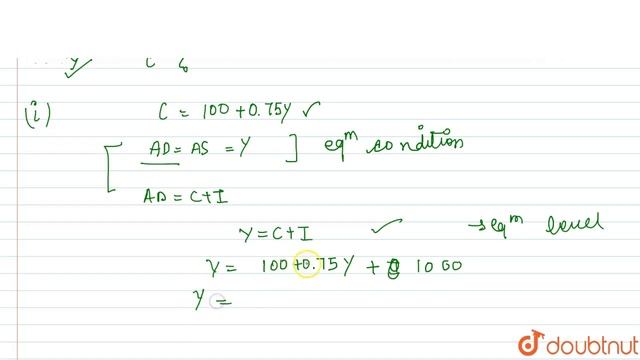 (i) C = 100 + 0.75Y ✓
AD = AS = Y ] eqm condition
AD = C+I
Y = C+I ✓ → eqm level
Y = 100 + 0.75Y + 1000
Y =
doubtnut